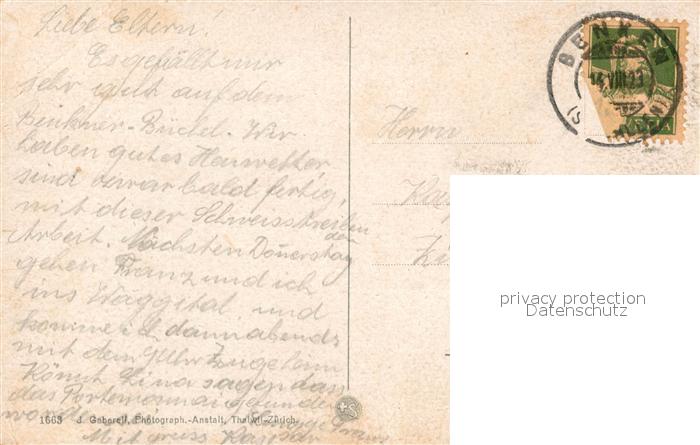 Liebe Eltern!
Es gefällt mir
sehr gut auf dem
Benkner-Büchel. Wir
haben gutes Heuwetter
sind zwar bald fertig,
mit dieser Schweisstreibenden
Arbeit. Nächsten Donerstag
gehen Franz und ich
ins Wäggital und
komme ich dann abends
mit dem Uhr Zuge heim
Könnt Lina sagen dass
das Portemonai gefunden
worden
Mit Gruss Kaspar
Herrn
1663 J. Gaberell, Photograph.-Anstalt, Thalwil-Zürich.
BENKEN
14.VIII.23
privacy protection
Datenschutz